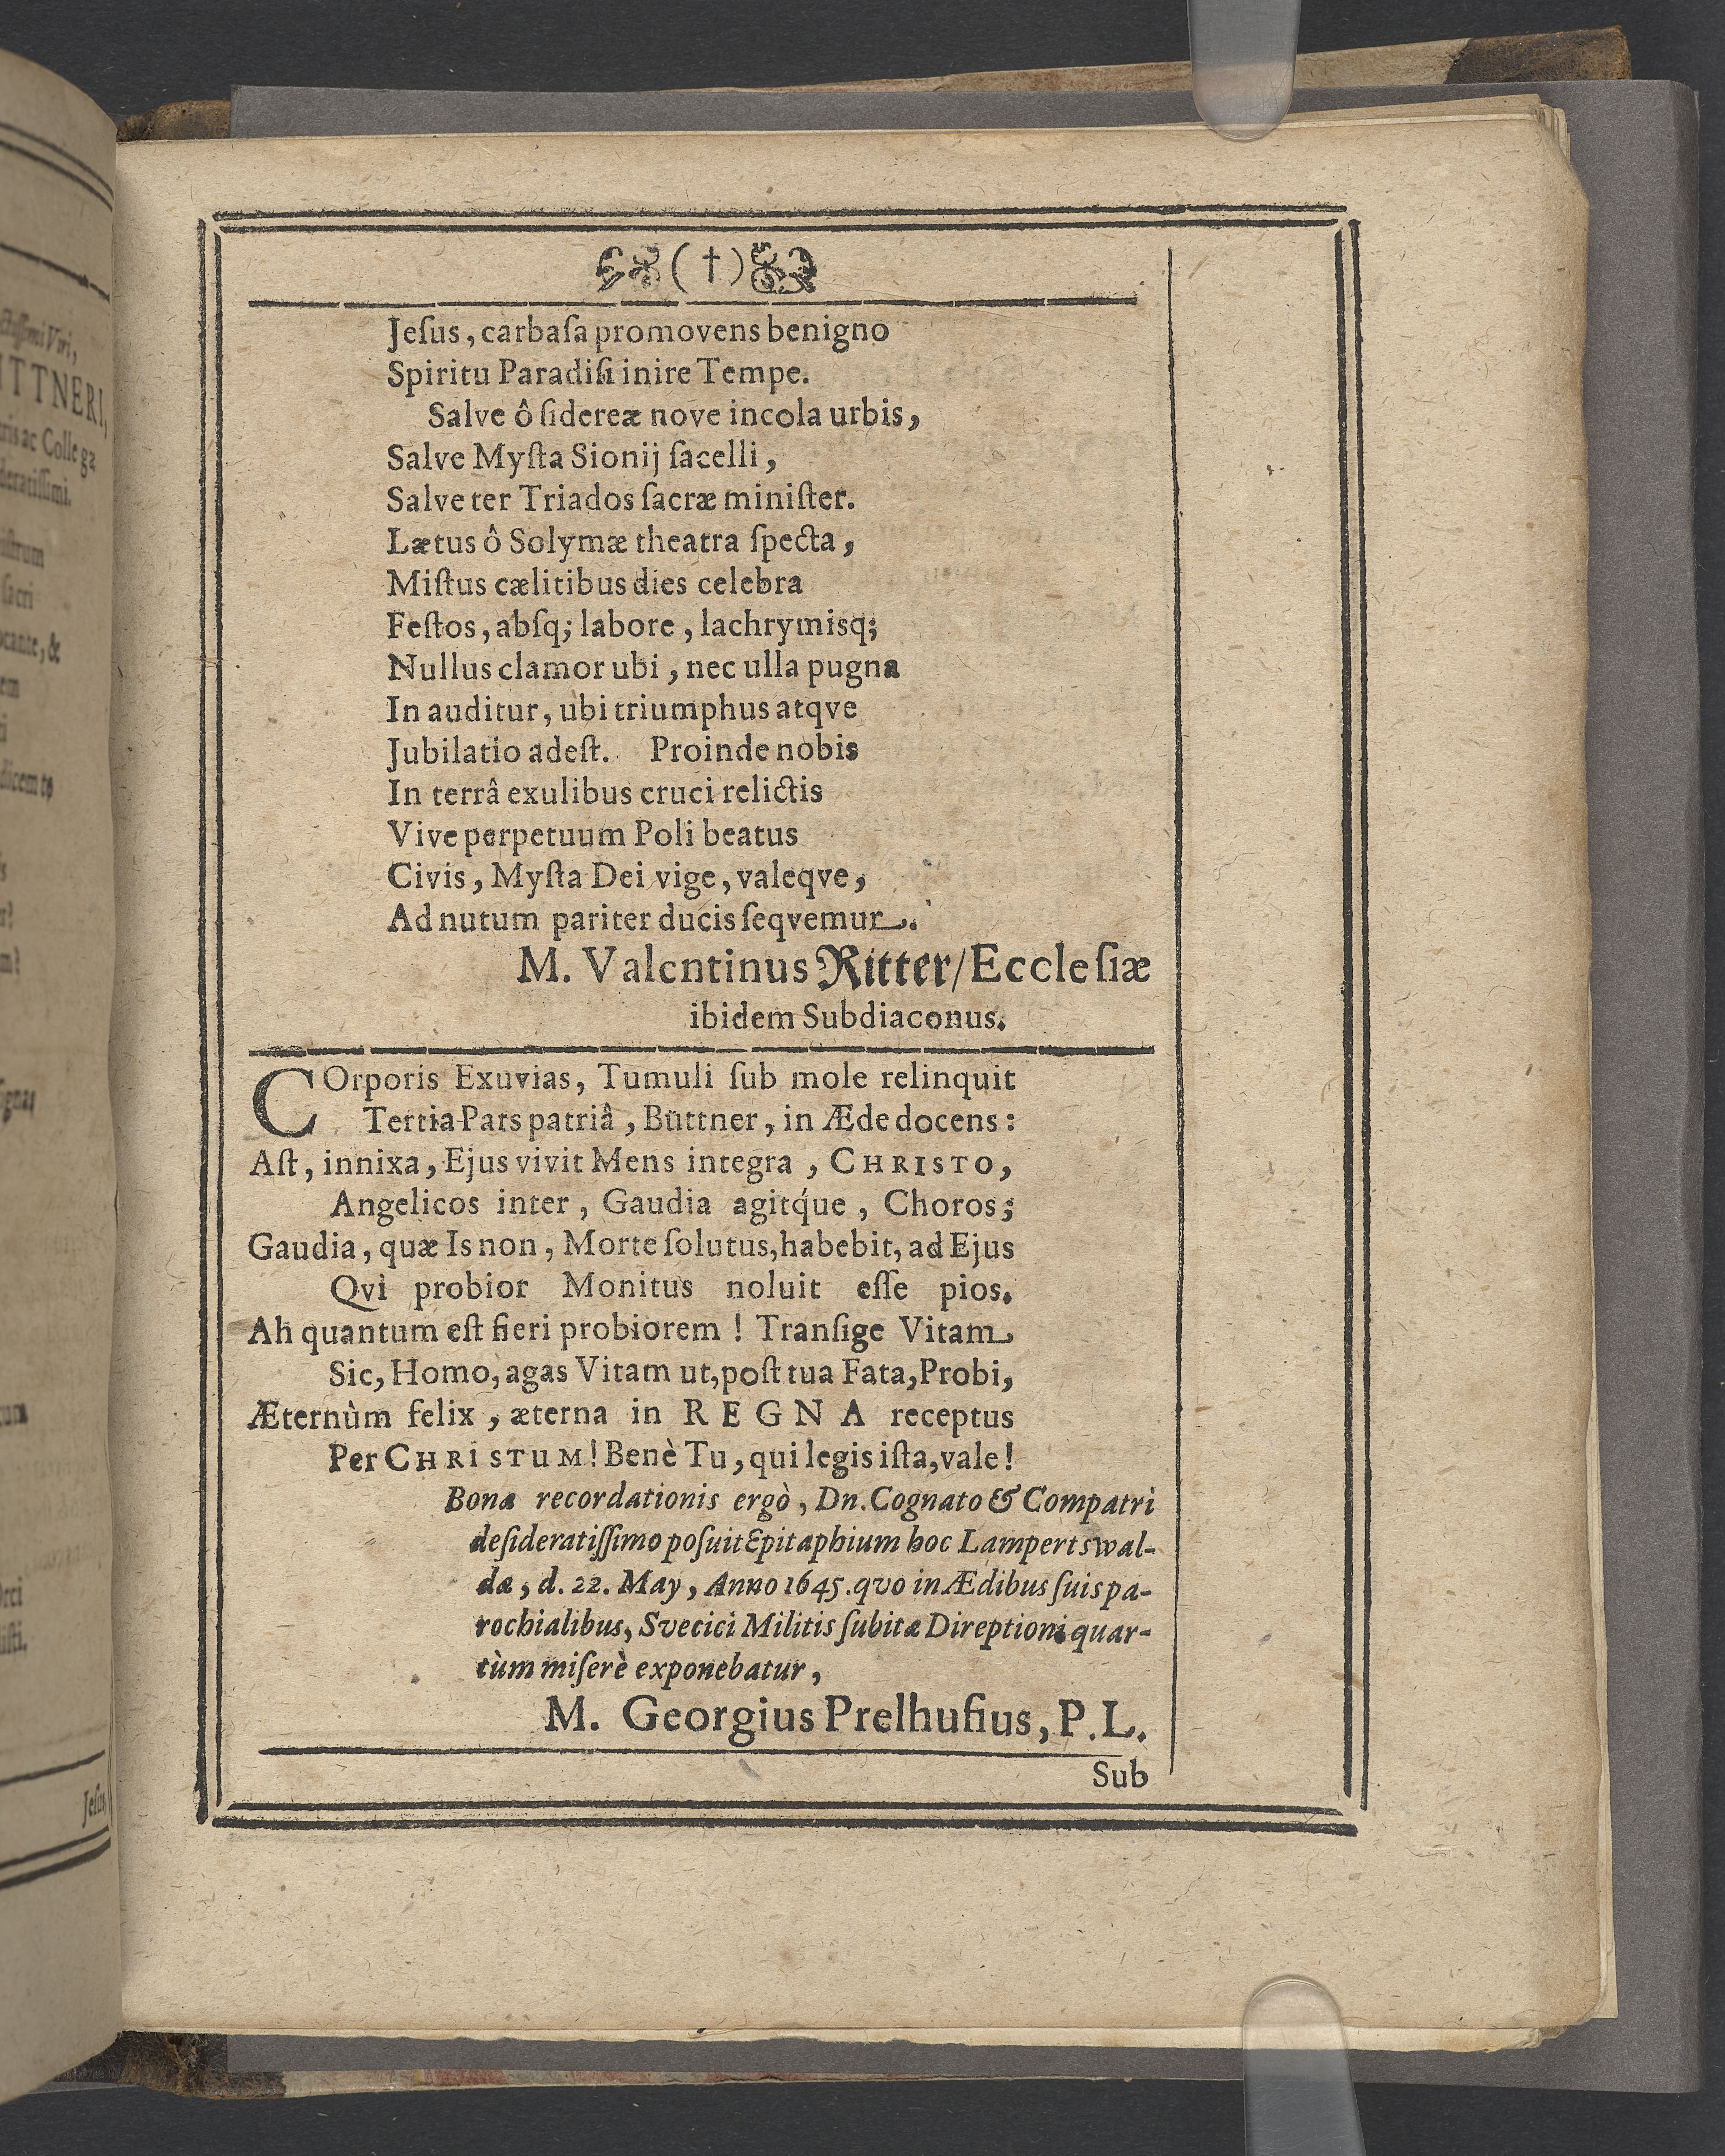 (†)
Jeſus, carbaſa promovens benigno
Spiritu Paradiſi inire Tempe.
Salve ô ſidereæ nove incola urbis,
Salve Myſta Sionij ſacelli,
Salve ter Triados ſacræ miniſter.
Lætus ô Solymæ theatra ſpecta,
Miſtus cælitibus dies celebra
Feſtos, abſq; labore, lachrymisq;
Nullus clamor ubi, nec ulla pugna
In auditur, ubi triumphus atqve
Jubilatio adeſt. Proinde nobis
In terrâ exulibus cruci relictis
Vive perpetuum Poli beatus
Civis, Myſta Dei vige, valeqve,
Ad nutum pariter ducis ſeqvemur.
M. Valentinus Ritter/Eccleſiæ
ibidem Subdiaconus.
COrporis Exuvias, Tumuli ſub mole relinquit
Tertia Pars patriâ, Büttner, in Æde docens:
Aſt, innixa, Ejus vivit Mens integra, CHRISTO,
Angelicos inter, Gaudia agitq́ue, Choros;
Gaudia, quæ Is non, Morte ſolutus, habebit, ad Ejus
Qvì probior Monitus noluit eſſe pios.
Ah quantum eſt fieri probiorem! Tranſige Vitam
Sic, Homo, agas Vitam ut, poſt tua Fata, Probi,
Æternùm felix, æterna in REGNA receptus
Per CHRISTUM! Benè Tu, qui legis iſta, vale!
Bonæ recordationis ergò, Dn. Cognato & Compatri
deſideratiſſimo poſuit Epitaphium hoc Lampertswal-
dæ, d. 22. May, Anno 1645. qvo in Ædibus ſuis pa-
rochialibus, Svecici Militis ſubitæ Direptioni quar-
tùm miſerè exponebatur,
M. Georgius Prelhufius, P.L.
Sub